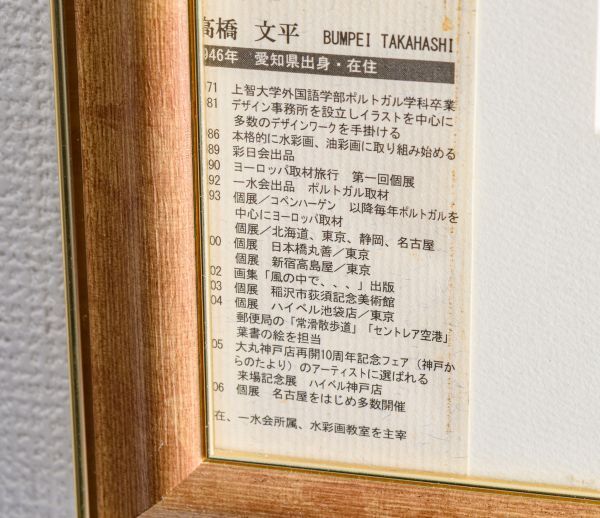 高橋 文平 BUMPEI TAKAHASHI
946年 愛知県出身・在住
71 上智大学外国語学部ポルトガル学科卒業
81 デザイン事務所を設立しイラストを中心に
多数のデザインワークを手掛ける
86 本格的に水彩画、油彩画に取り組み始める
89 彩日会出品
90 ヨーロッパ取材旅行 第一回個展
92 一水会出品 ポルトガル取材
93 個展／コペンハーゲン 以降毎年ポルトガルを
中心にヨーロッパ取材
個展／北海道、東京、静岡、名古屋
00 個展 日本橋丸善／東京
個展 新宿高島屋／東京
02 画集「風の中で、、、」出版
03 個展 稲沢市荻須記念美術館
04 個展 ハイペル池袋店／東京
郵便局の「常滑散歩道」「セントレア空港」
葉書の絵を担当
05 大丸神戸店再開10周年記念フェア（神戸か
らのたより）のアーティストに選ばれる
来場記念展 ハイペル神戸店
06 個展 名古屋をはじめ多数開催
在、一水会所属、水彩画教室を主宰